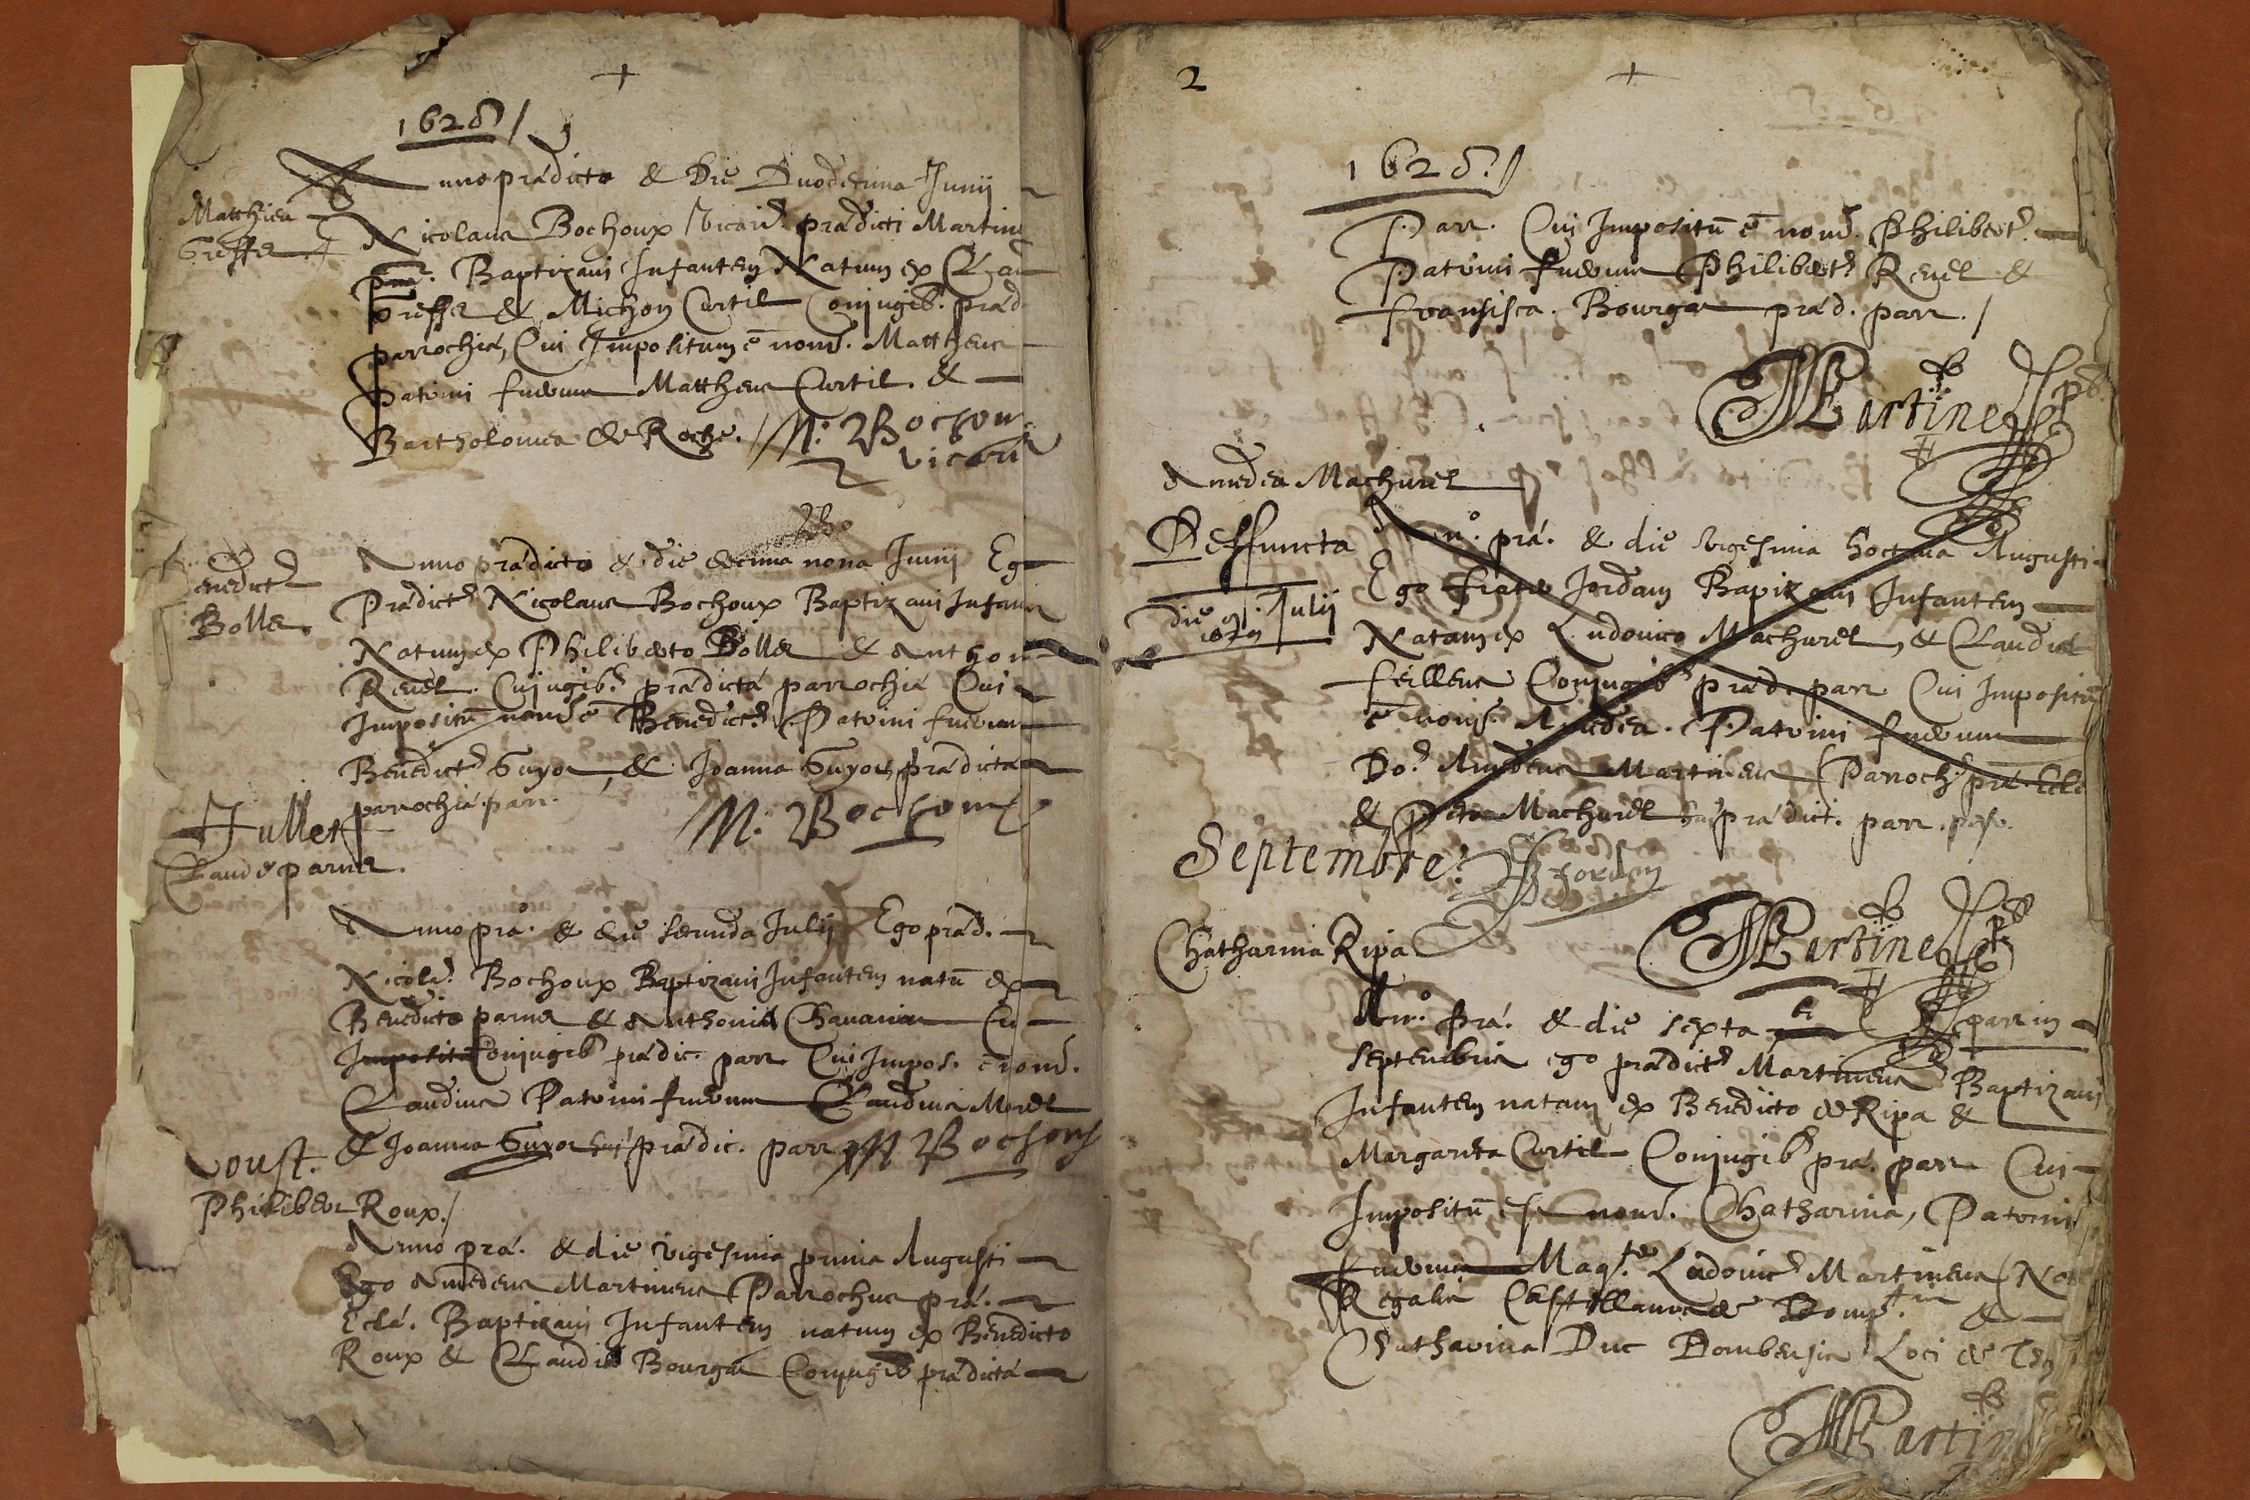 1628 /
Anno prædicto & Die Duodecima Junij
Matthieu
Greffet
Nicolaus Bochoux Vicari9 prædicti Martini
Baptizavi Infantem Natum ex
Greffet & Michon Curtil Conjugib9. præd.
parrochiæ, Cui Impositum ē nom̄. Mattheus
Patrini fuerunt Mattheus Curtil. &
Bartholomea de Roche. / N: Bochoux
vicari
Anno prædicto & die decima nona Junij Ego
Benedict9
Bollet.
Prædict9 Nicolaus Bochoux Baptizavi Infan
Natum ex Philiberto Bollet & Anthon
Revel. Cujugib9 prædictæ parrochiæ Cui
Impositū nom̄ ē Benedict9. Patrini fuerun
Benedict9 Guyot, & Joanna Guyot prædictæ
parrochiæ parr. N. Bochoux
Jullet
Claude parnet.
Anno præ. & die secunda Julij Ego præd.
Nicola9. Bochoux Baptizavi Infantem natū ex
Benedicto parnet & Anthonia Chanavier Cu
Imposit Conjugib9 prædic. parr Cui Impos. ē nom̄.
Claudius Patrini fuerunt Claudius Morel
& Joanna Guyot prædic. parr N Bochoux
Aoust.
Philibert Roux. /
Anno præ. & die vigesima prima Augusti
Ego Amedeus Martineus Parrochus præ.
Eclæ. Baptizavi Infantem natum ex Benedicto
Roux & Claudia Bourgat Conjugib9 prædictæ
2
1628. /
Parr. Cui Impositū ē nom̄. Philibert9.
Patrini fuerunt Philibert9 Revel &
Fransisca. Bourgat præd. parr. /
Martine
Amedea Machurel
Deffuncta
die 9. Julij
1629
An̊. præ. & die vigesima hoctava Augusti
Ego frater Jordam Bapizavi Infantem
Natam ex Ludovico Machurel, & Claudia
feilleus Conjugib9 præd. parr Cui Impositū
ē nom̄. Amedea. Patrini fuerunt
Do9. Amedeus Martineus Parroch9 præ. Ecle
& Petra Machurel prædict. parr.
Septembre.
F Jordan
Martine
Chatharina Ripa
An̊. præ. & die sexta
septembris ego prædict9 Martineus Baptizavi
Infantem natam ex Benedicto de Ripa &
Margareta Curtil Conjugib9 præ. parr Cui
Impositū est nom̄. Chatharina, Patrini
fuerunt Mag.ter Ludovic9 Martineus Not
Regalis Castellanus de &
Chatharina Duc Dombensis Loci de
Martin